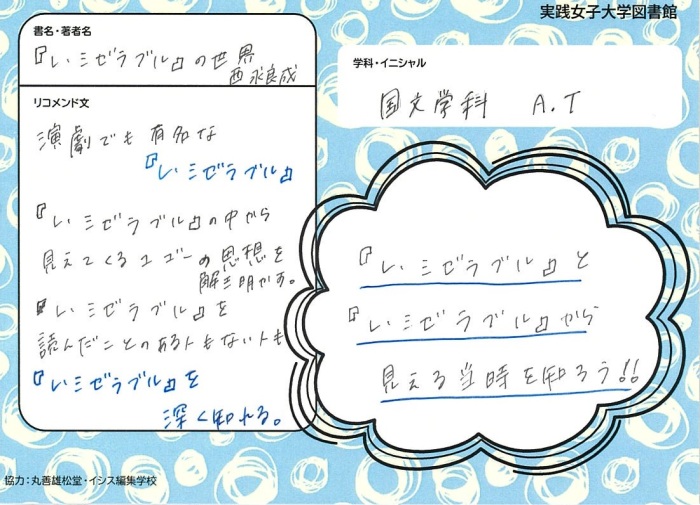 実践女子大学図書館
書名・著者名
『レ・ミゼラブル』の世界
西永良成
学科・イニシャル
国文学科 A.T
リコメンド文
演劇でも有名な
『レ・ミゼラブル』
『レ・ミゼラブル』の中から
見えてくるユゴーの思想を
解き明かす。
『レ・ミゼラブル』を
読んだことのある人もない人も
『レ・ミゼラブル』を
深く知れる。
『レ・ミゼラブル』と
『レ・ミゼラブル』から
見える当時を知ろう!!
協力:丸善雄松堂・イシス編集学校